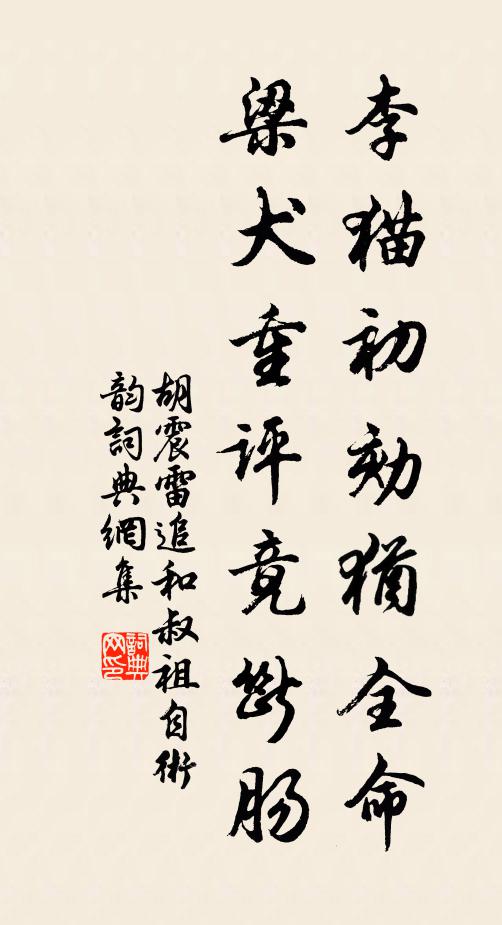 李猫初劾犹全命
梁犬重评竟断肠
胡震雷追和叔祖自術
韵詞典網集
詞典網印